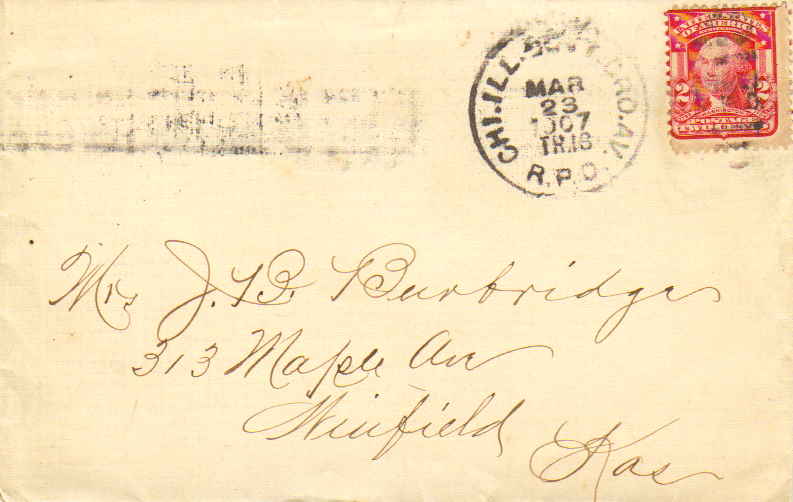 CHI. ILL. CHO. AV.
MAR
23
1907
TR.18
R.P.O.
UNITED STATES
OF AMERICA
2 2
POSTAGE
Mrs J. B. Burbridge
313 Maple Ave
Winfield
Kas